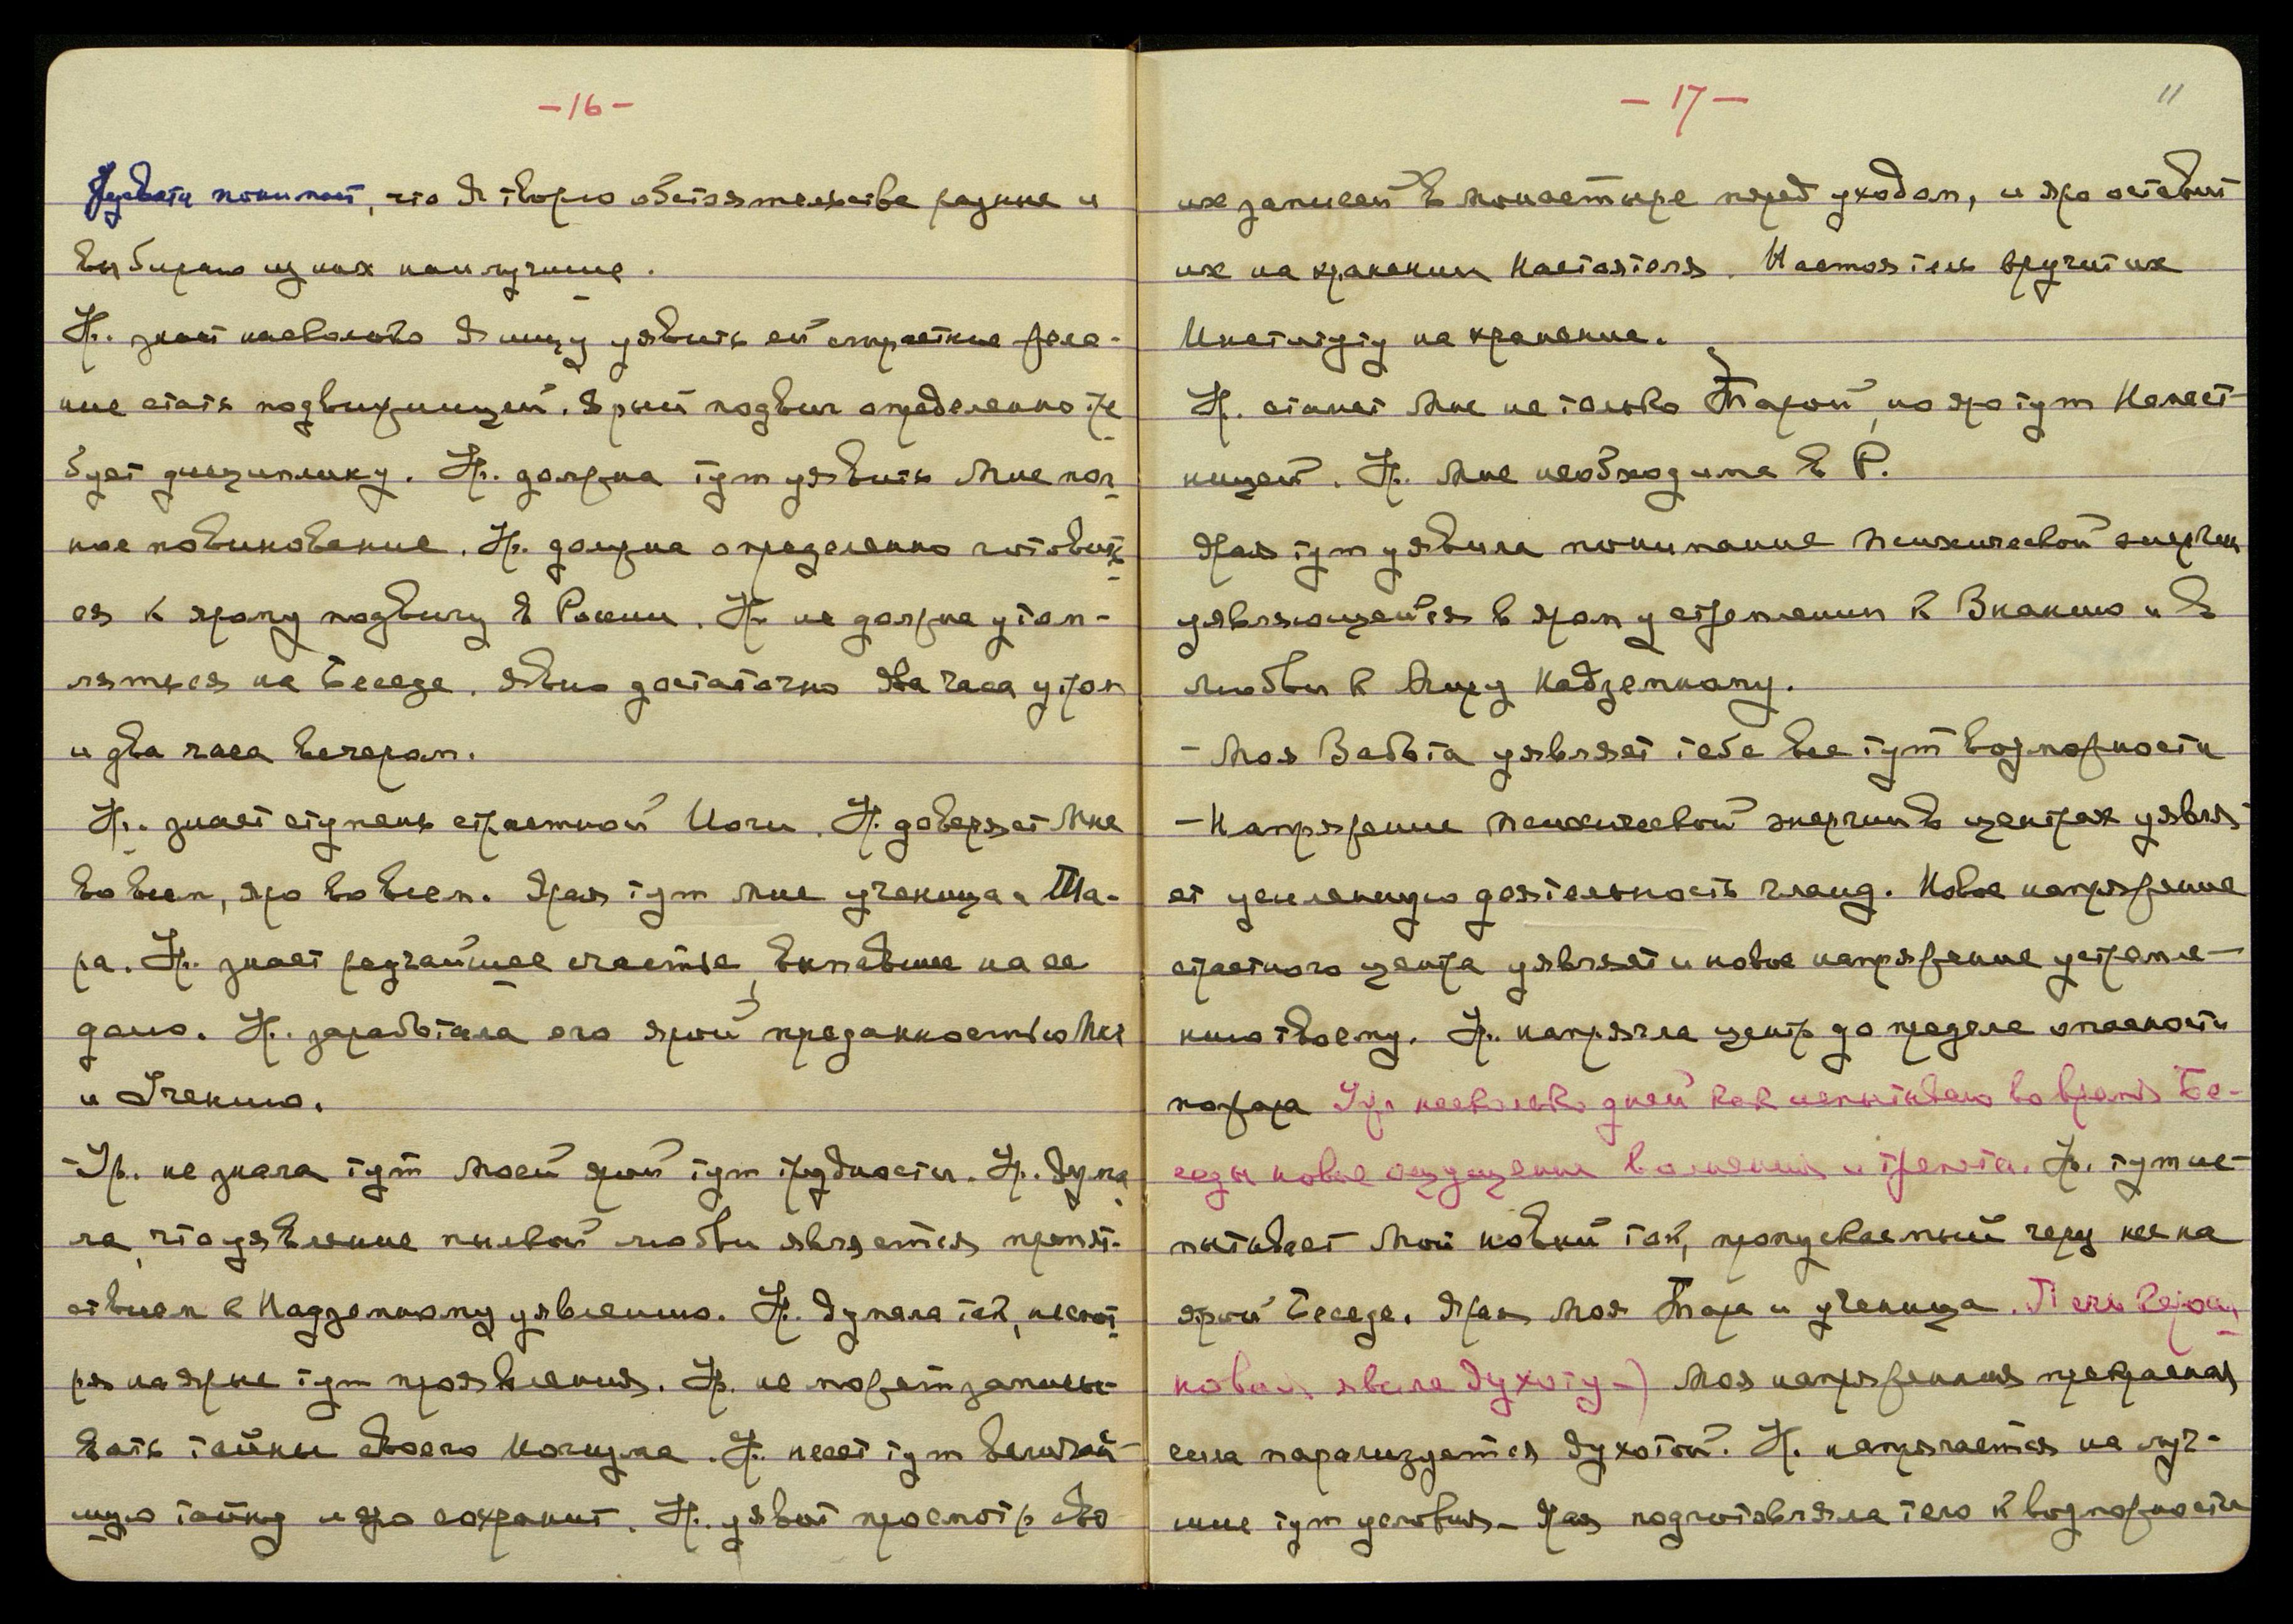 -16-
Урусвати понимает, что Я творю обстоятельства разные и
выбираю из них наилучшие.
Ур. знает насколько Я ищу уявить ей страстное жела-
ние стать подвижницей. Ярый подвиг определенно тре
бует дисциплину. Ур. должна тут уявить Мне пол
ное повиновение. Ур. должна определенно готовить
ся к ярому подвигу в России. Ур. не должна утом-
ляться на Беседе. Явно достаточно два часа утром
и два часа вечером.
Ур. знает ступень страстной Йоги. Ур. доверяет Мне
во всем, яро во всем. Ярая тут Мне ученица и Та-
ра. Ур. знает редчайшее счастье, выпавшее на ее
долю. Ур. заработала его ярой преданностью Мне
и Учению.
- Ур. не знала тут Моей ярой тут трудности. Ур. дума
ла, что уявление пылкой любви является препят-
ствием к Надземному уявлению. Ур. думала так, несмот
ря на ярые тут проявления. Ур. не может записы-
вать тайны своего Ногула. Ур. несет тут величай-
шую тайну и яро сохранит. Ур. уявит просмотр сво
-17-
11
их записей в монастыре перед уходом, и яро оставит
их на хранении Настоятеля. Настоятель вручит их
Институту на хранение.
Ур. станет Мне не только Тарой, но яро тут Намест-
ницей. Ур. Мне необходима в Р.
Ярая тут уявила понимание психической энергии
уявляющейся в яром устремлении к Знанию и в
любви к Миру Надземному.
- Моя Забота уявляет тебе все тут возможности
- Напряжение психической энергии в центрах уявля
ет усиленную деятельность гланд. Новое напряжение
страстного центра уявляет и новое напряжение устремле-
нию твоему. Ур. напрягла центр до предела опасности
пожара Уже несколько дней как испытываю во время Бе-
седы новые ощущения волнения и трепета. Ур. тут ис-
пытывает Мой новый ток, пропускаемый через нее на
ярой Беседе. Ярая Моя Тара и ученица. Печь кероси
новая явила духоту-) Моя напряженная прекрасная
сила парализуется духотой. Ур. напрягается на луч-
шие тут условия - Ярая подготовляла тело к возможности